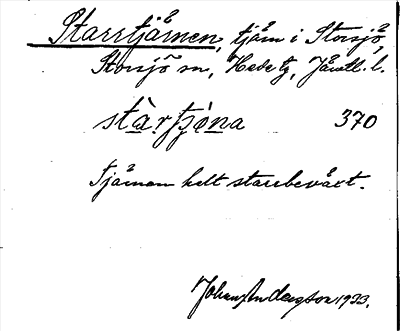 Starrtjärnen, tjärn i Storsjö,
Storsjö sn, Hede tg, Jämtl. l.
stàrtjóna 370
Tjärnen helt starrbeväxt.
Johan Andersson 1933.